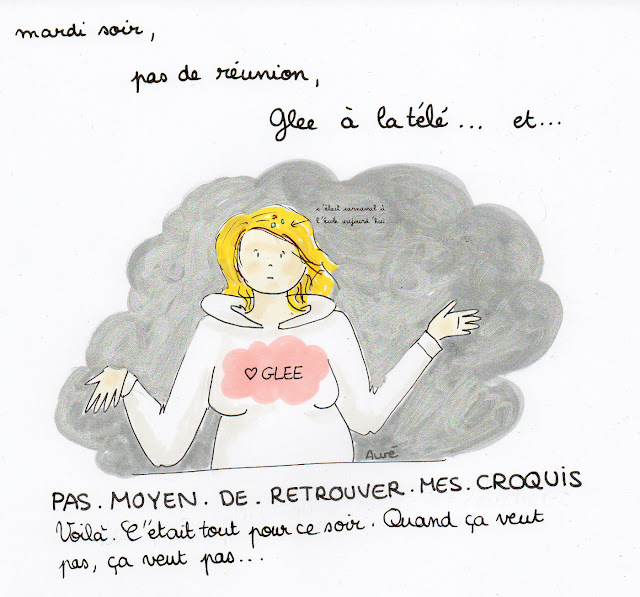 mardi soir,
pas de réunion,
Glee à la télé... et...
c'était carnaval à
l'école aujourd'hui...
♡ GLEE
Auré
PAS. MOYEN. DE. RETROUVER. MES. CROQUIS
Voilà. C'était tout pour ce soir. Quand ça veut
pas, ça veut pas...